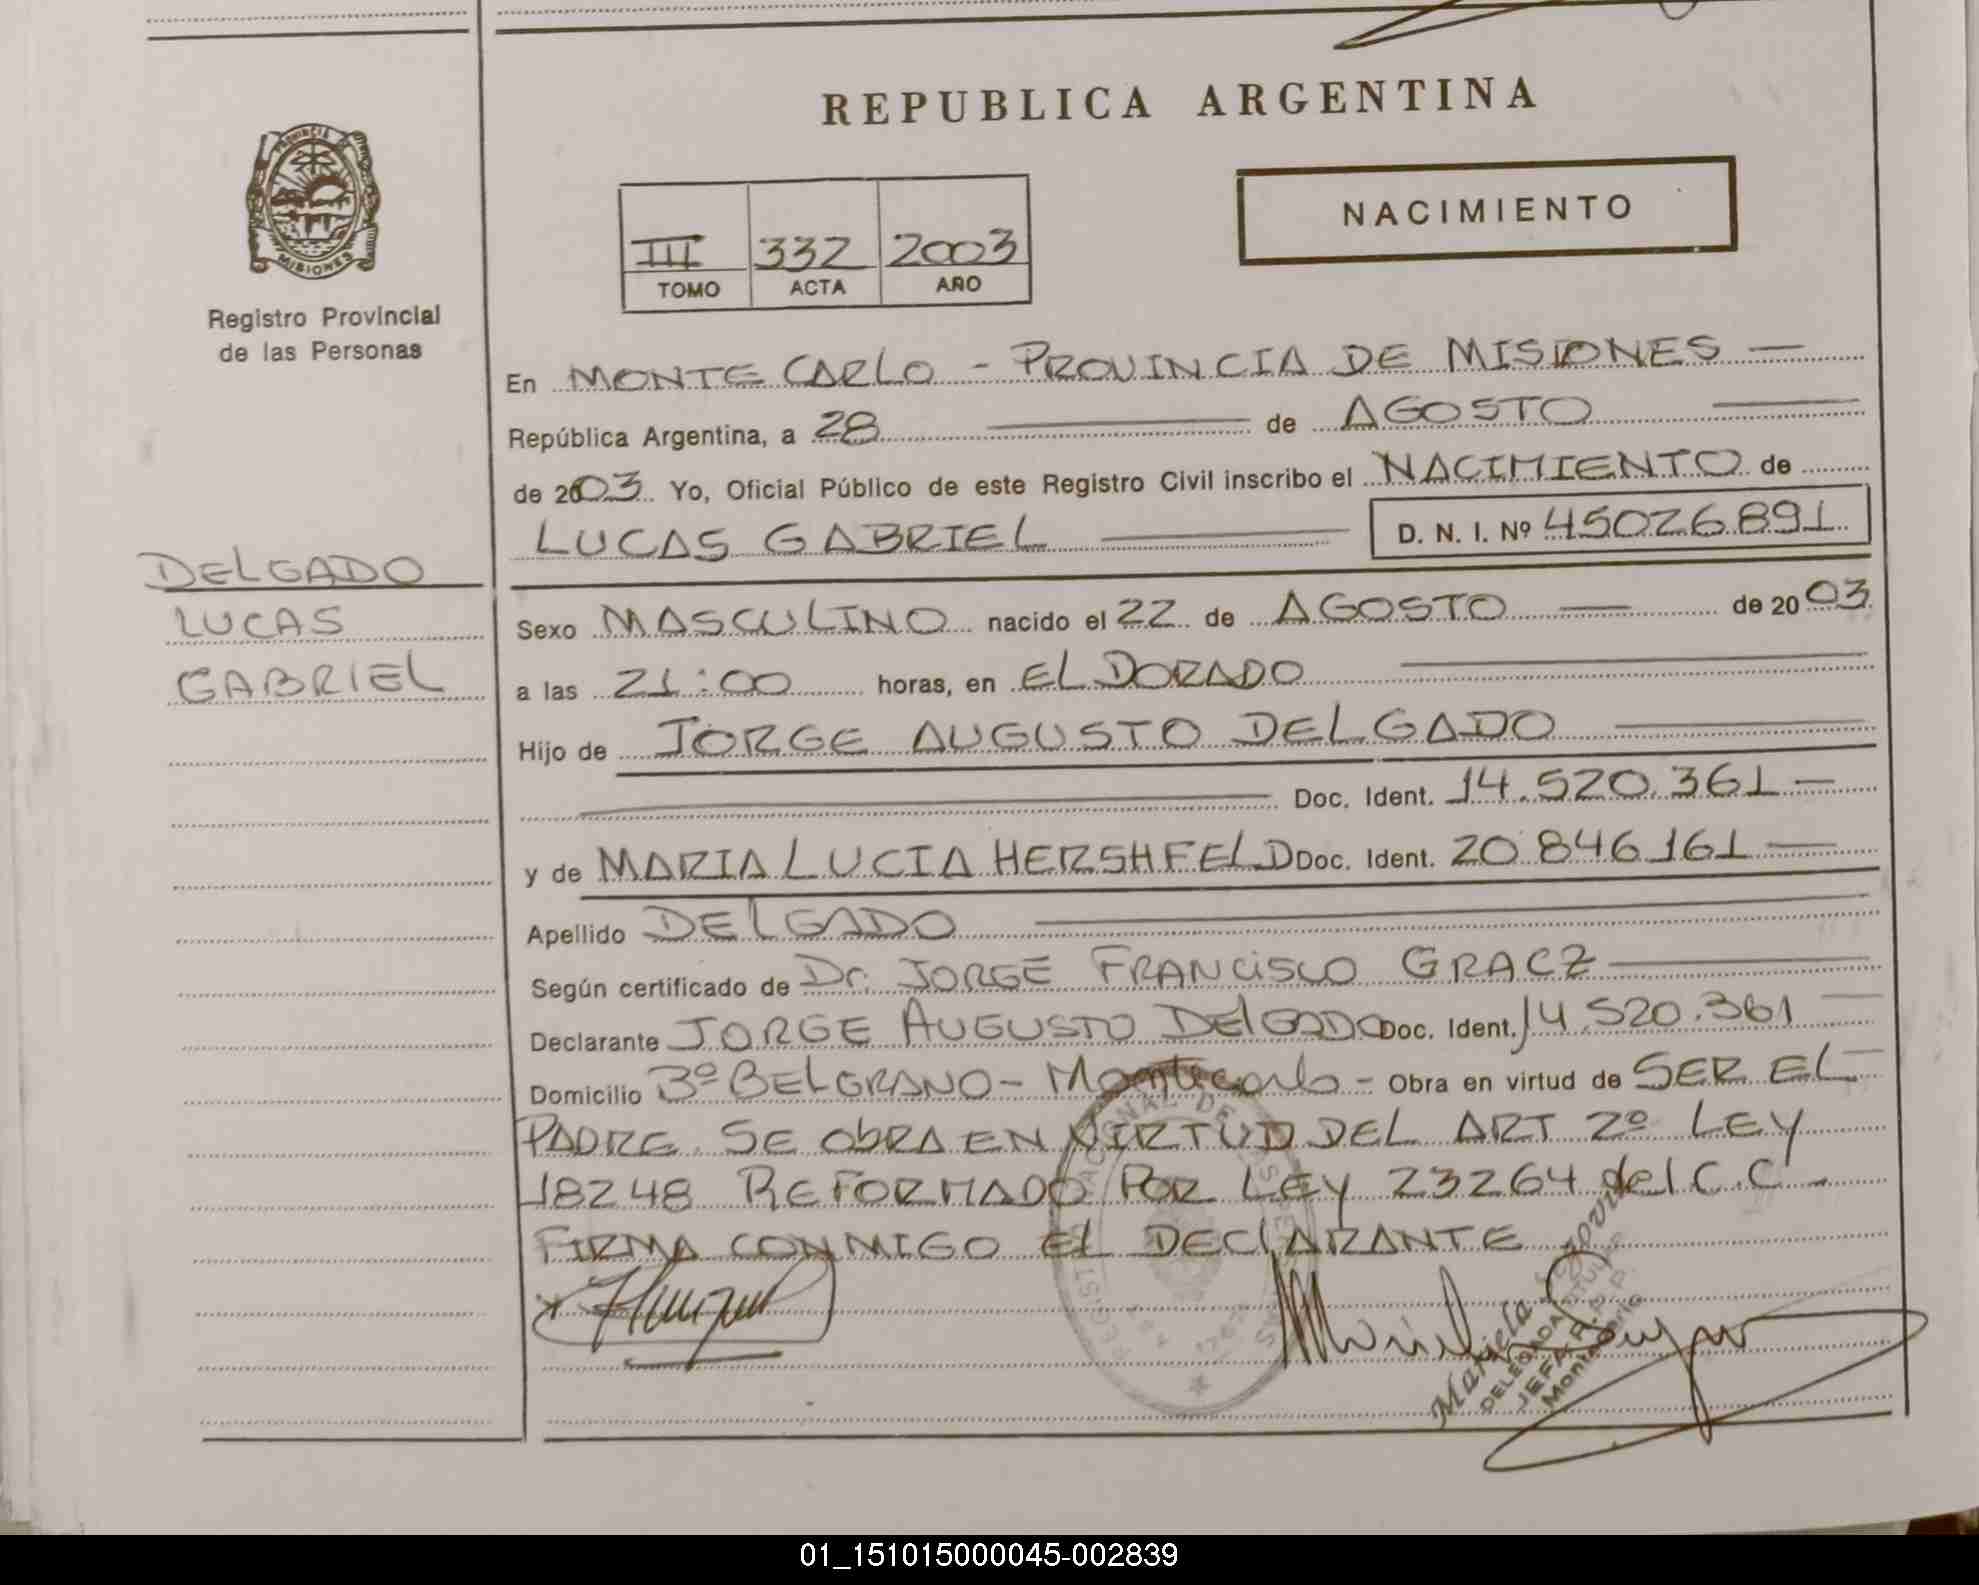 REPUBLICA ARGENTINA
PROVINCIA DE MISIONES
Registro Provincial
de las Personas
NACIMIENTO
III 332 2003
TOMO ACTA AÑO
En MONTE CARLO - PROVINCIA DE MISIONES —
República Argentina, a 28 — de AGOSTO —
de 2003 Yo, Oficial Público de este Registro Civil inscribo el NACIMIENTO de
LUCAS GABRIEL — D. N. I. Nº 45026891
DELGADO
LUCAS
GABRIEL
Sexo MASCULINO nacido el 22 de AGOSTO — de 2003
a las 21:00 horas, en EL DORADO —
Hijo de JORGE AUGUSTO DELGADO —
— Doc. Ident. 14.520.361 —
y de MARIA LUCIA HERSHFELD Doc. Ident. 20.846.161 —
Apellido DELGADO —
Según certificado de Dr. JORGE FRANCISCO GRACZ —
Declarante JORGE AUGUSTO DELGADO Doc. Ident. 14.520.361 —
Domicilio Bº BELGRANO - Montecarlo - Obra en virtud de SER EL —
PADRE. SE ObRA EN VIRTUD DEL ART 2º LEY
18248 REFORMADO POR LEY 23264 del C.C -
FIRMA CONMIGO EL DECLARANTE
Mariela
DELEGADA TITULAR
JEFA R.P.P.
Montecarlo
01_151015000045-002839